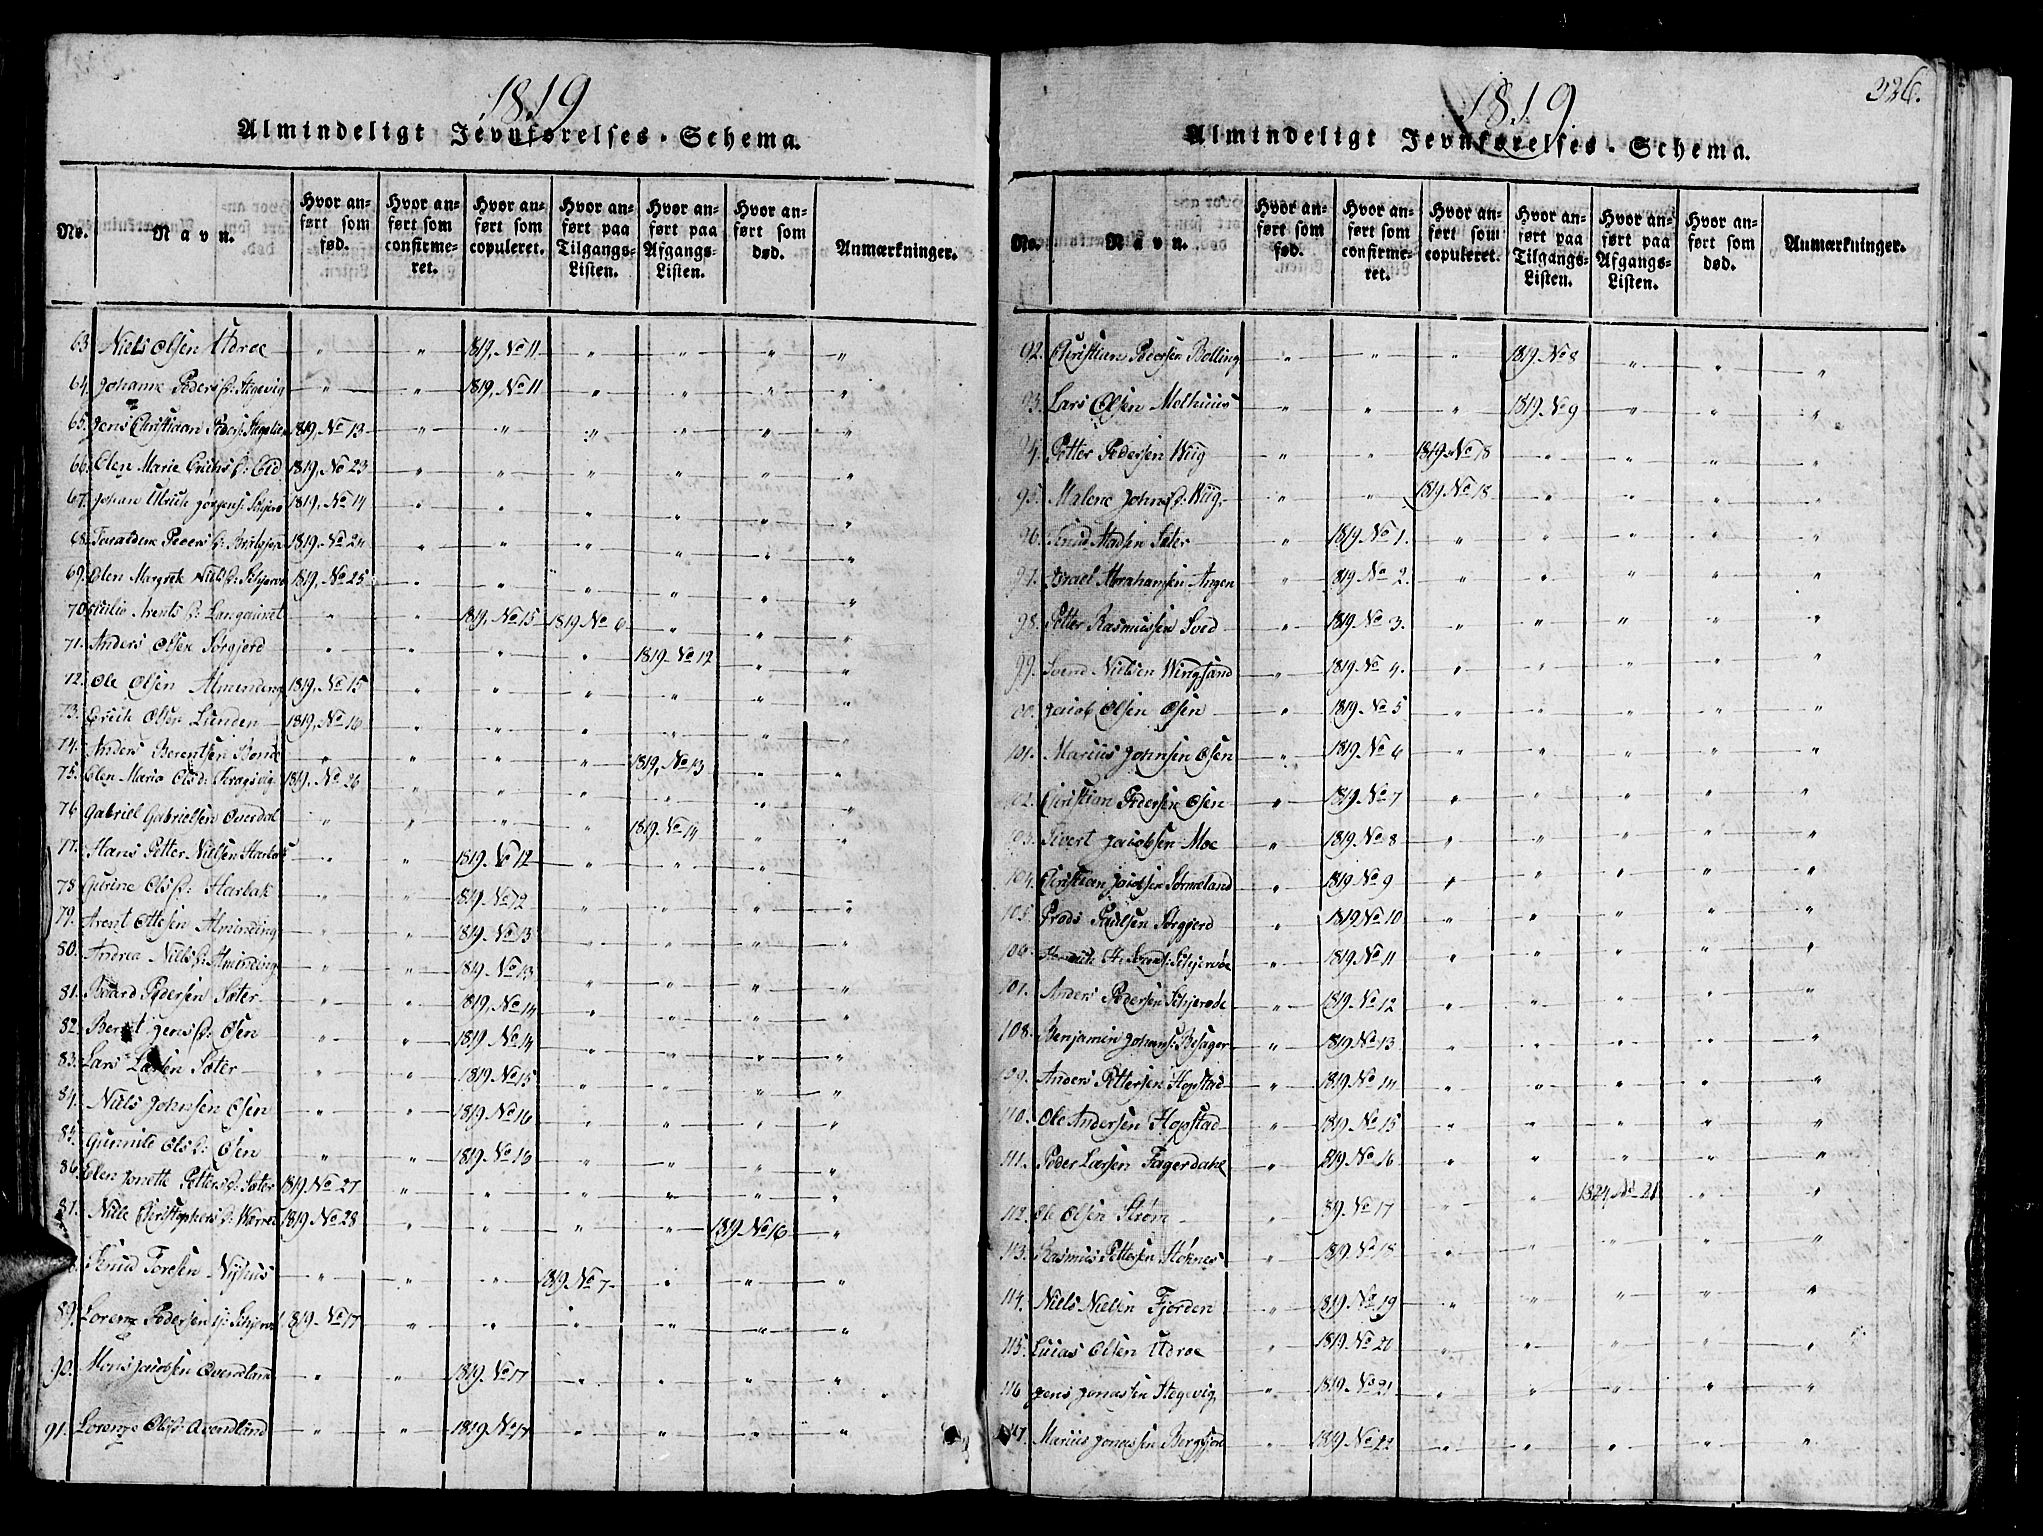 1819
Almindeligt Jevnførelses-Schema.
No. Navn. Hvor anført som fød. Hvor anført som confirmeret. Hvor anført som copuleret. Hvor anført paa Tilgangs-Listen. Hvor anført paa Afgangs-Listen. Hvor anført som død. Anmærkninger.
63 Niels Olsen Udroe " " 1819, No 11 " " " "
64. Johanne Peders D: Stegevig " " 1819, No 11 " " " "
65. Jens Christian Peders: 1819. No 13 " " " " " "
66. Elen Marie Erichs D: Eid 1819. No 23 " " " " " "
67. Johan Ulrich Jørgens: 1819, No 14 " " " " " "
68. Peders D: 1819. No 24 " " " " " "
69. Elen Margrete Niels D: 1819, No 25 " " " " " "
70. Arents D: " " 1819, No 15 1819 No 6. " " "
71. Anders Olsen Sørgjerd " " " " 1819. No 12 " "
72. Ole Olsen Alminding 1819. No 15 " " " " " "
73. Erich Olsen Lunden 1819, No 16 " " " " " "
74. Anders Berentsen " " " " 1819, No 13 " "
75. Elen Maria Olsd: 1819. No 26 " " " " " "
76 Gabriel Gabrielsen Overdal " " " " 1819. No 14 " "
77. Hans Petter Nielsen Harbak " " 1819. No 12 " " " "
78 Gurine Ols D: Harbak " " 1819 No 12 " " " "
79. Arent Ottesen Alminding " " 1819. No 13 " " " "
80. Andrea Niels D: Alminding " " 1819. No 13 " " " "
81. Baard Pedersen Sæter " " 1819, No 14 " " " "
82. Berit Jens D: Osen " " 1819. No 14 " " " "
83. Lars Larsen Sæter " " 1819. No 15 " " " "
84. Niels Johnsen Osen " " 1819. No 16 " " " "
85. Gunnild Ols D: Osen " " 1819. No 16 " " " "
86. Elen Jonette Petters D: Sæter 1819. No 27 " " " " " "
87. Christophers D: 1819 No 28 " " " " 1819. No 16 "
Knud Toresen Nyhuus " " " 1819. No 7 " " "
89. Lorenz Pedersen 1819. No 17 " " " " " "
90. Mons Jacobsen " " 1819. No 17 " " " "
91. Lorenze Ols D: Avendland " " 1819. No 17 " " " "
1819.
326.
Almindeligt Jevnførelses-Schema.
No. Navn. Hvor anført som fød. Hvor anført som confirmeret. Hvor anført som copuleret. Hvor anført paa Tilgangs-Listen. Hvor anført paa Afgangs-Listen. Hvor anført som død. Anmærkninger.
92. Christian Pedersen Bolling " " " 1819. No 8 " " "
93. Lars Olsen Melhuus " " " 1819. No 9 " " "
94. Petter Pedersen Wiig " " 1819. No 18 " " " "
95. Malene Johns D: Wiig, " " 1819. No 18 " " " "
96. Knud Madsen Sæter " 1819. No 1. " " " " "
97. Israel Abrahamsen Angen " 1819. No 2. " " " " "
98. Petter Rasmussen Sved " 1819. No 3. " " " " "
99. Svend Nielsen Wingsand " 1819. No 4. " " " " "
00. Jacob Olsen Osen " 1819. No 5 " " " " "
101. Marcus Johnsen Osen " 1819. No 6 " " " " "
102. Christian Pedersen Osen " 1819. No 7 " " " " "
103. Sivert Jacobsen Moe " 1819. No 8 " " " " "
104. Christian Jacobsen Sørmeland " 1819 No 9 " " " " "
105. Paulsen Sørgjerd " 1819 No 10 " " " " "
106. " 1819 No 11 " " " " "
107. Anders Pedersen Schjervøe " 1819. No 12 " " " " "
108. Benjamin Johans: Besager " 1819 No 13 " " " " "
109. Anders Pettersen Hopstad " 1819 No 14 " " " " "
110. Ole Andersen Hopstad " 1819. No 15 " " " " "
111. Peder Larsen Fagerdahl " 1819. No 16 " " " " "
112. Ole Olsen Strøm " 819. No 17 " " 1824. No 21. " "
113. Rasmus Pettersen Stoknes " 1819. No 18 " " " " "
114. Niels Nielsen Fjorden " 1819. No 19 " " " " "
115. Lucas Olsen Udroe " 1819. No 20 " " " " "
116 Jens Jonassen Stegevig, " 1819. No 21 " " " " "
117. Marius Jonassen " 1819. No 22 " " " " "